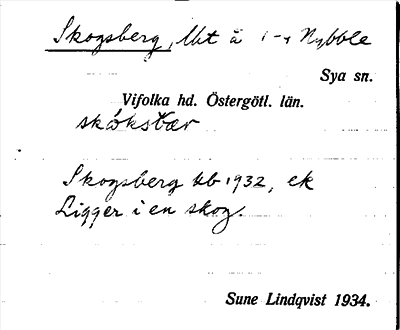 Skogsberg, lht å 1-4 Nybble
Sya sn.
Vifolka hd. Östergötl. län.
Skogsberg kb 1932, ek
Ligger i en skog.
Sune Lindqvist 1934.